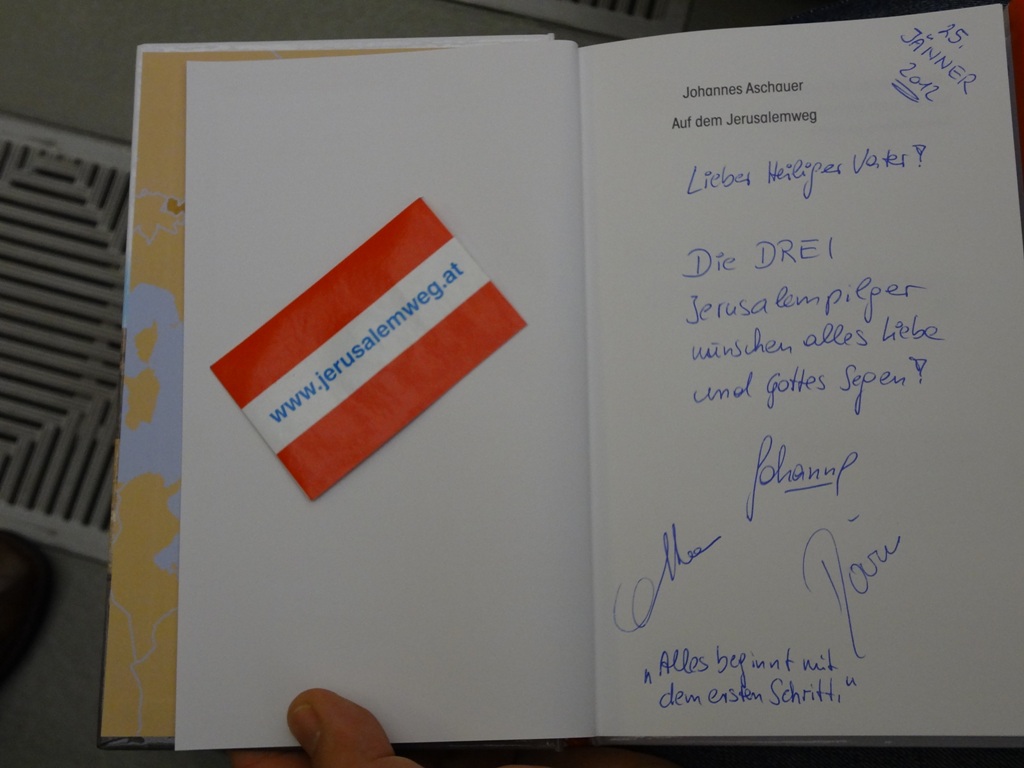 www.jerusalemweg.at
25.
JÄNNER
2012
Johannes Aschauer
Auf dem Jerusalemweg
Lieber Heiliger Vater!
Die DREI
Jerusalempilger
wünschen alles Liebe
und Gottes Segen!
"Alles beginnt mit
dem ersten Schritt,"